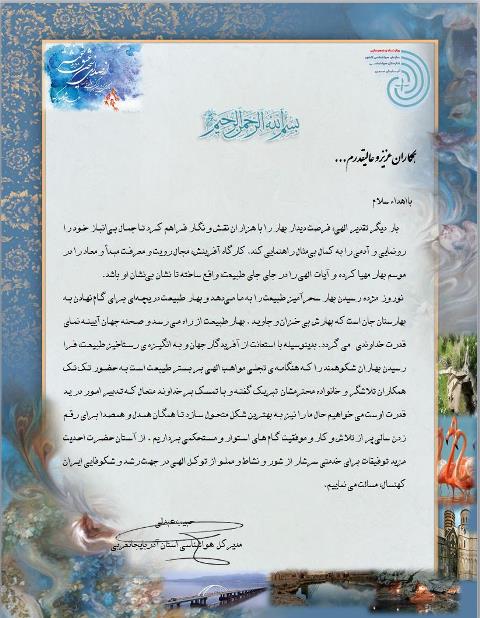 وزارت راه و شهرسازی
سازمان هواشناسی کشور
بسم الله الرحمن الرحیم
همکاران عزیز و عالیقدرم ...
با اهداء سلام
بار دیگر تقدیر الهی، فرصت دیدار بهار را با هزاران نقش و نگار فراهم کرد تا جمال بی انباز خود را
رونمایی و آدمی را به کمال بی مثال راهنمایی کند. کارگاه آفرینش، مجال رویت و معرفت مبدأ و معاد را در
موسم بهار مهیا کرده و آیات الهی را در جای جای طبیعت واقع ساخته تا نشان بی نشان او باشد.
نوروز مژده رسیدن بهار سحرآمیز طبیعت را به ما می دهد و بهار طبیعت دریچه ای برای گام نهادن به
بهارستان جان است که بهارش بی خزان و جاوید . بهار طبیعت از راه می رسد و صحنه جهان آیینه نمای
قدرت خداوندی می گردد. بدینوسیله با استعانت از آفریدگار جهان و به انگیزه ی رستاخیز طبیعت فرا
رسیدن بهاران شکوهمند را که هنگامه ی تجلی مواهب الهی بر بستر طبیعت است به حضور تک تک
همکاران تلاشگر و خانواده محترمشان تبریک گفته و با تمسک بر خداوند متعال که تدبیر امور در ید
قدرت اوست می خواهیم حال ما را نیز به بهترین شکل متحول سازد تا همگان همدل و همصدا برای رقم
زدن سالی پر از تلاش و کار و موفقیت گام های استوار و مستحکمی برداریم . از آستان حضرت احدیت
مزید توفیقات برای خدمتی سرشار از شور و نشاط و مملو از توکل الهی در جهت رشد و شکوفایی ایران
کهنسال، مسألت می نماییم.
مدیر کل هواشناسی استان آذربایجانغربی